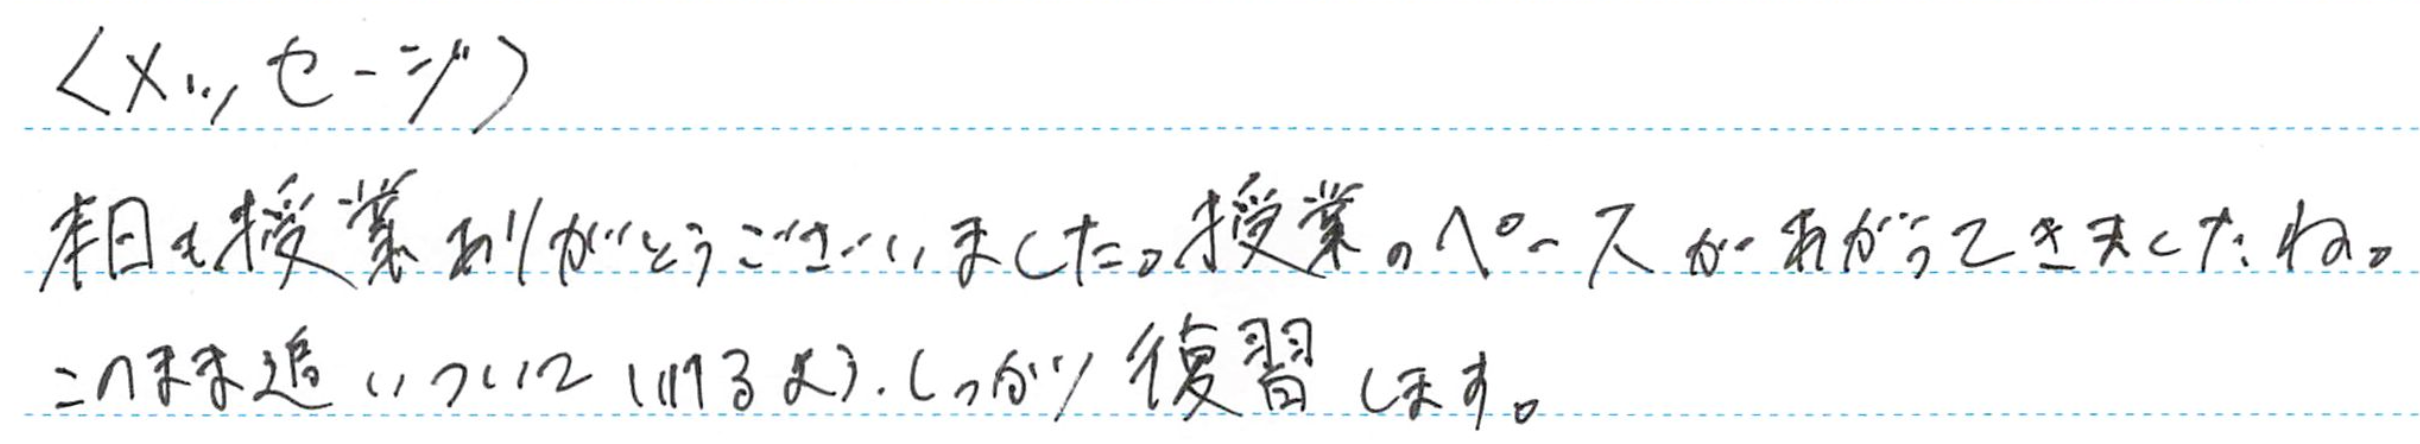 〈メッセージ〉
本日も授業ありがとうございました。授業のペースがあがってきましたね。
このまま追いついていけるよう、しっかり復習します。